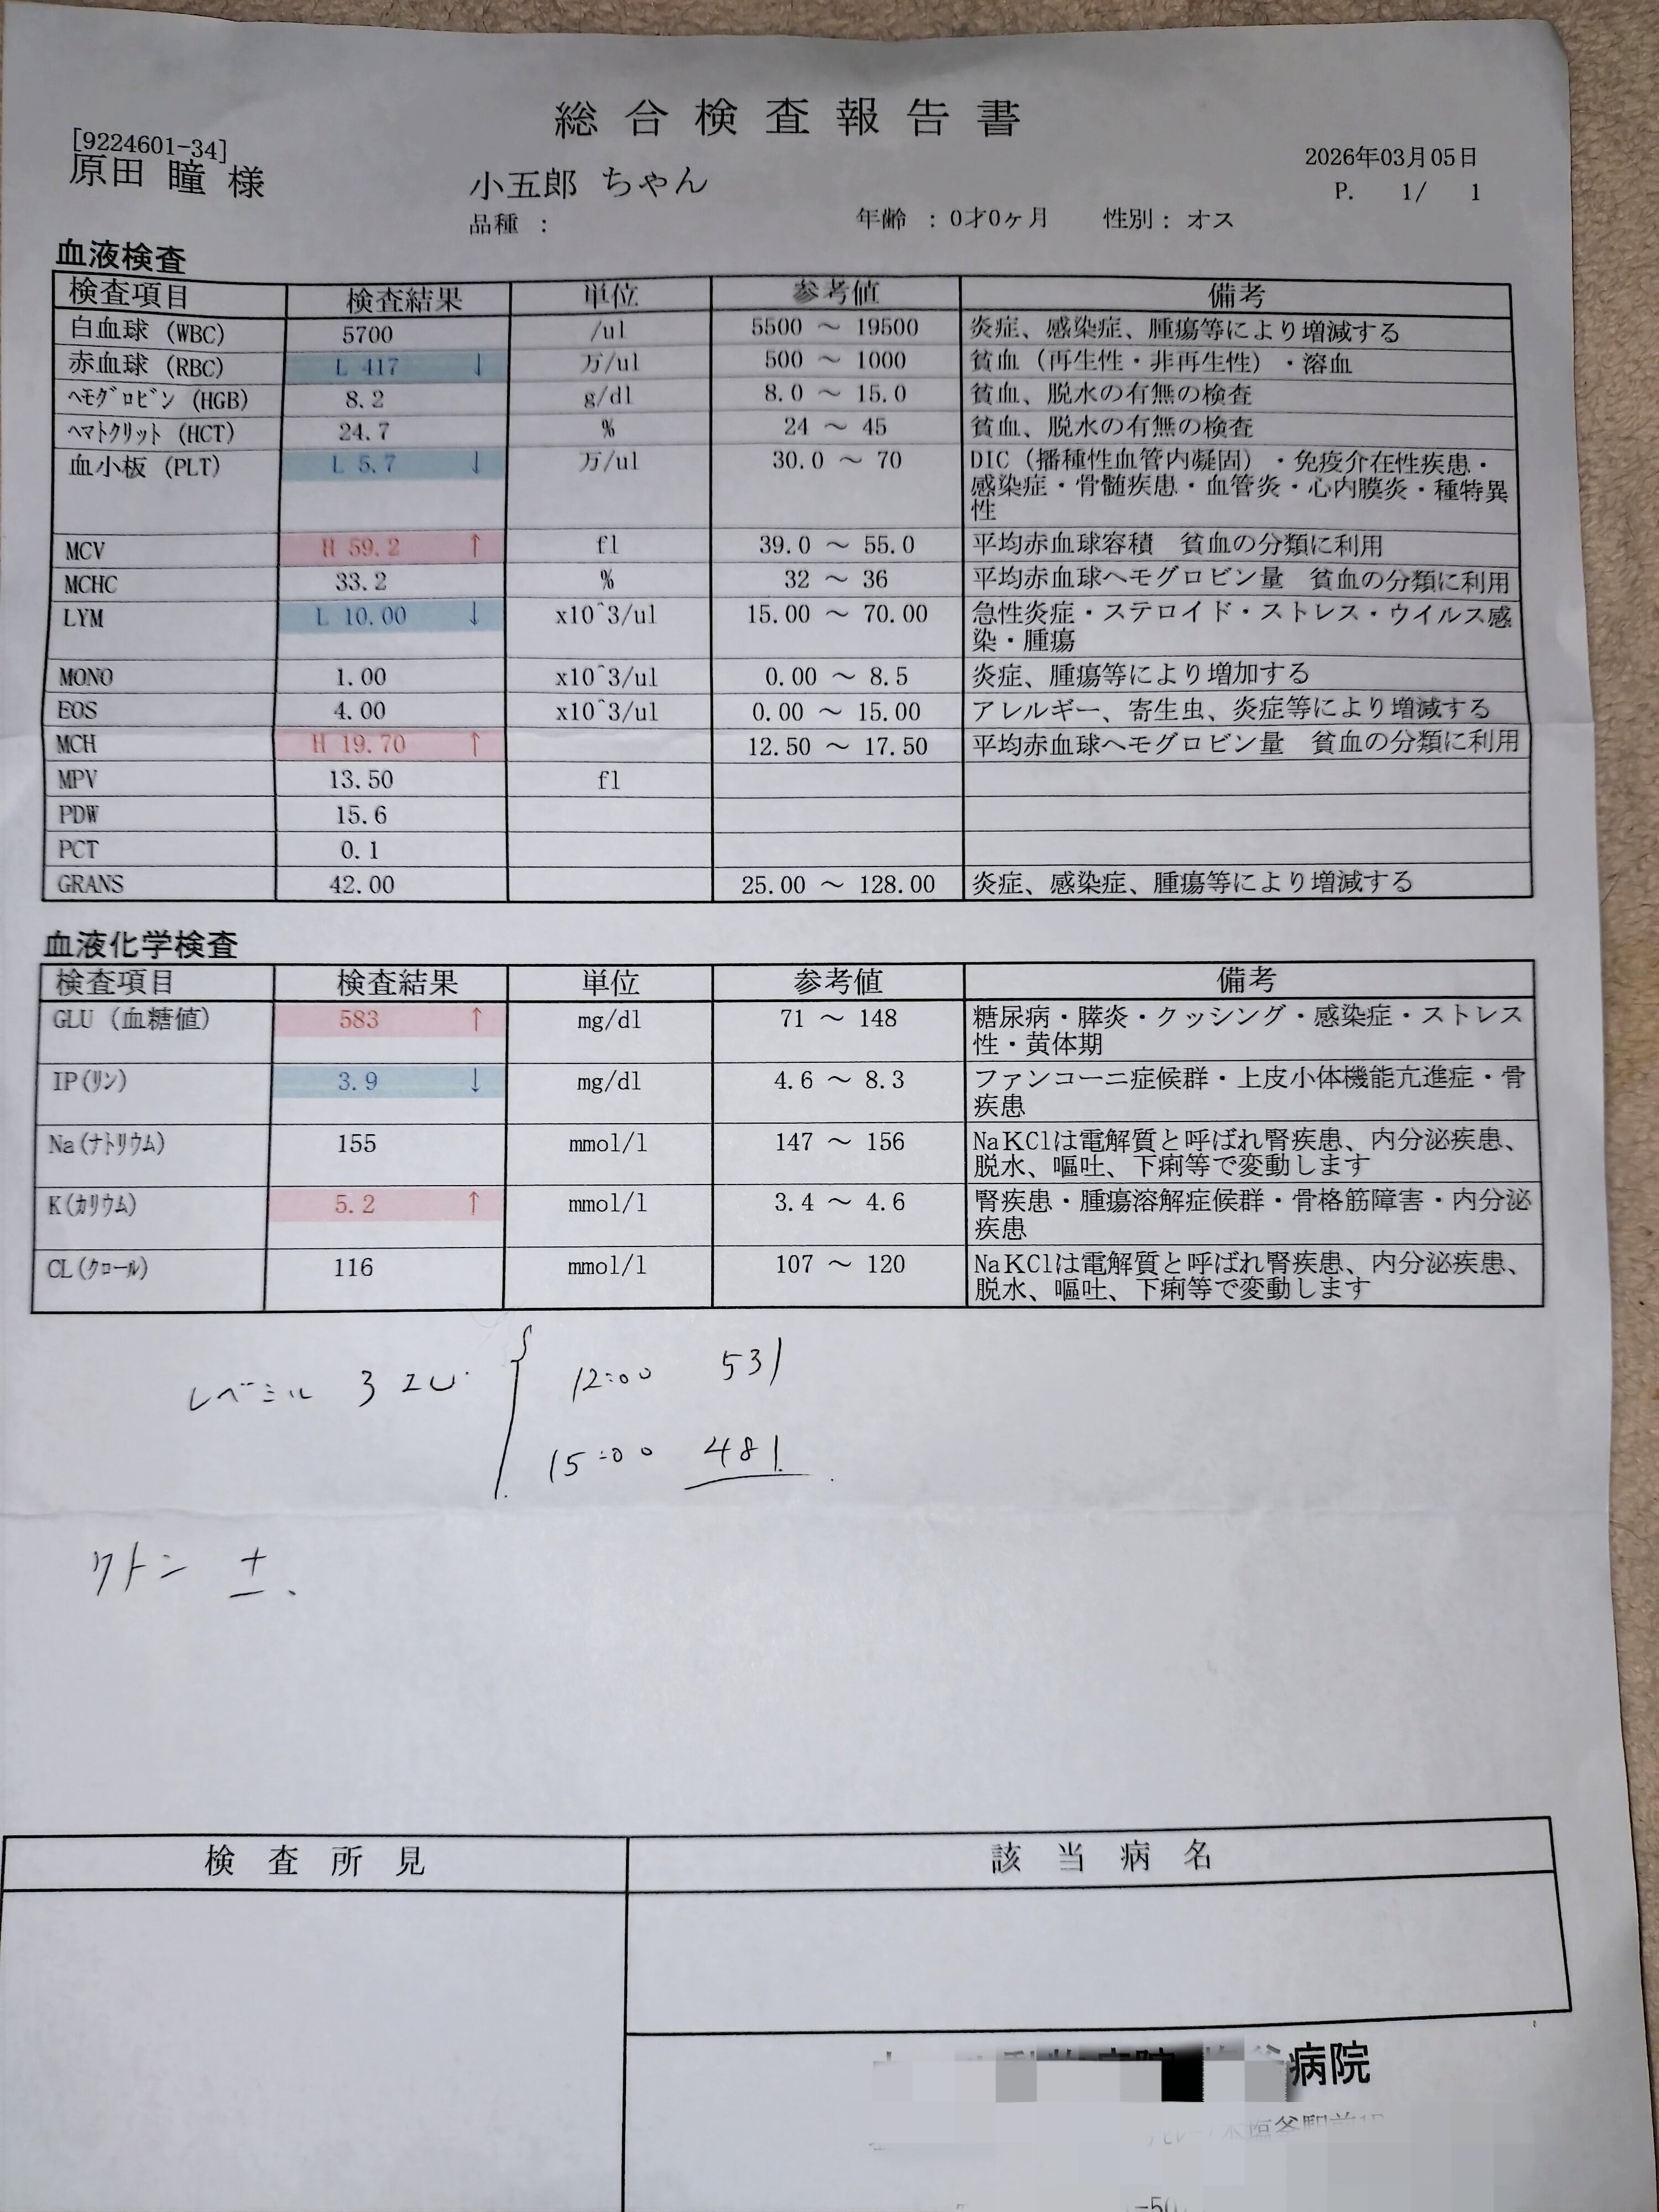 総合検査報告書
[9224601-34]
原田 瞳 様
小五郎 ちゃん
2026年03月05日
P. 1/ 1
品種 : 年齢 : 0才0ヶ月 性別 : オス
血液検査
検査項目 検査結果 単位 参考値 備考
白血球 (WBC) 5700 /ul 5500 ～ 19500 炎症、感染症、腫瘍等により増減する
赤血球 (RBC) L 417 ↓ 万/ul 500 ～ 1000 貧血（再生性・非再生性）・溶血
ﾍﾓｸﾞﾛﾋﾞﾝ (HGB) 8.2 g/dl 8.0 ～ 15.0 貧血、脱水の有無の検査
ﾍﾏﾄｸﾘｯﾄ (HCT) 24.7 % 24 ～ 45 貧血、脱水の有無の検査
血小板 (PLT) L 5.7 ↓ 万/ul 30.0 ～ 70 DIC（播種性血管内凝固）・免疫介在性疾患・
感染症・骨髄疾患・血管炎・心内膜炎・種特異
性
MCV H 59.2 ↑ fl 39.0 ～ 55.0 平均赤血球容積 貧血の分類に利用
MCHC 33.2 % 32 ～ 36 平均赤血球ヘモグロビン量 貧血の分類に利用
LYM L 10.00 ↓ x10^3/ul 15.00 ～ 70.00 急性炎症・ステロイド・ストレス・ウイルス感
染・腫瘍
MONO 1.00 x10^3/ul 0.00 ～ 8.5 炎症、腫瘍等により増加する
EOS 4.00 x10^3/ul 0.00 ～ 15.00 アレルギー、寄生虫、炎症等により増減する
MCH H 19.70 ↑ 12.50 ～ 17.50 平均赤血球ヘモグロビン量 貧血の分類に利用
MPV 13.50 fl
PDW 15.6
PCT 0.1
GRANS 42.00 25.00 ～ 128.00 炎症、感染症、腫瘍等により増減する
血液化学検査
検査項目 検査結果 単位 参考値 備考
GLU (血糖値) 583 ↑ mg/dl 71 ～ 148 糖尿病・膵炎・クッシング・感染症・ストレス
性・黄体期
IP(ﾘﾝ) 3.9 ↓ mg/dl 4.6 ～ 8.3 ファンコーニ症候群・上皮小体機能亢進症・骨
疾患
Na(ﾅﾄﾘｳﾑ) 155 mmol/l 147 ～ 156 NaKClは電解質と呼ばれ腎疾患、内分泌疾患、
脱水、嘔吐、下痢等で変動します
K(ｶﾘｳﾑ) 5.2 ↑ mmol/l 3.4 ～ 4.6 腎疾患・腫瘍溶解症候群・骨格筋障害・内分泌
疾患
CL(ｸﾛｰﾙ) 116 mmol/l 107 ～ 120 NaKClは電解質と呼ばれ腎疾患、内分泌疾患、
脱水、嘔吐、下痢等で変動します
レベミル 3 IU. 12:00 531
15:00 481
ケトン ±.
検査所見 該当病名
病院